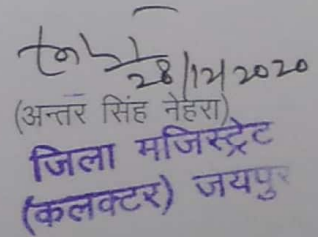 28/12/2020
(अन्तर सिंह नेहरा)
जिला मजिस्ट्रेट
(कलक्टर) जयपुर